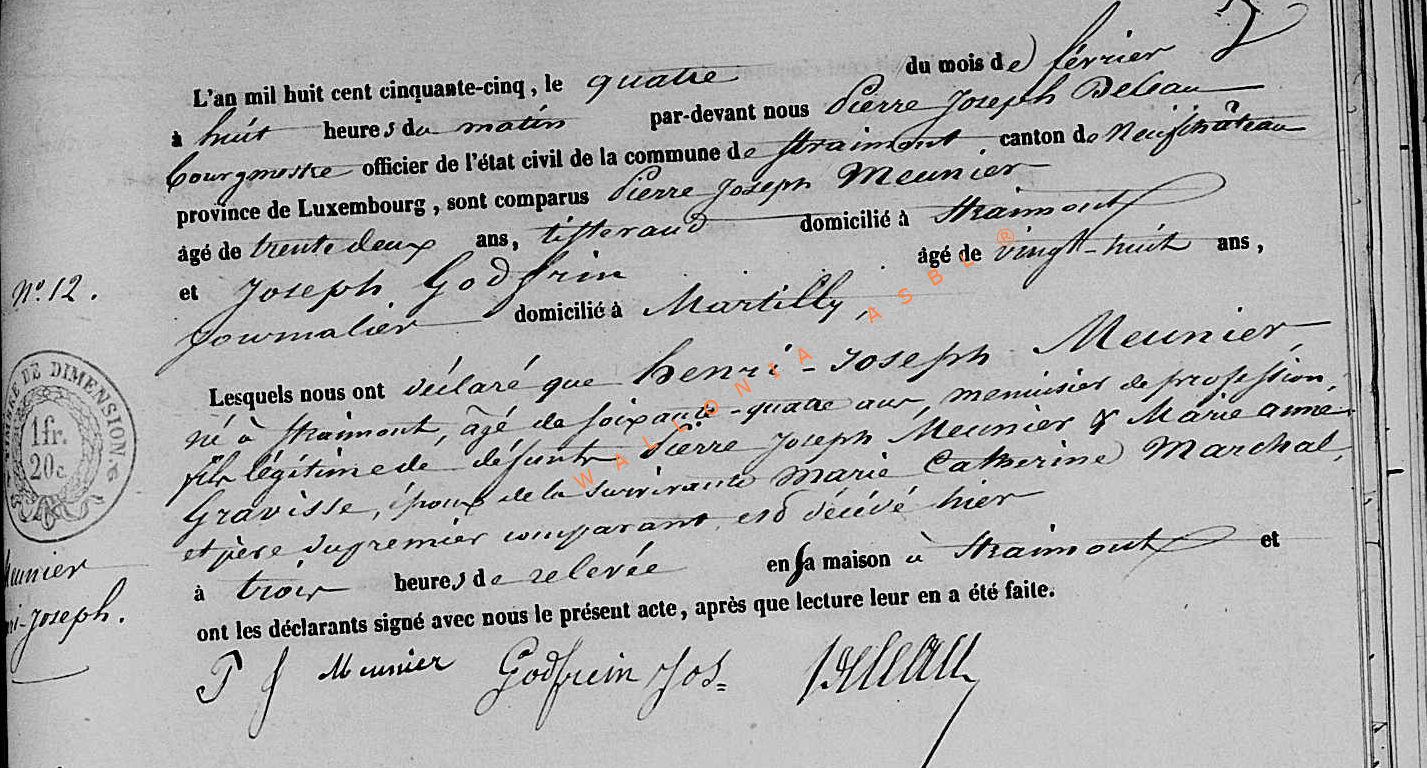 7
L'an mil huit cent cinquante-cinq, le quatre du mois de février
à huit heures du matin par-devant nous Pierre Joseph Deleau
bourgmestre officier de l'état civil de la commune de Straimont, canton de Neufchâteau
province de Luxembourg, sont comparus Pierre Joseph Meunier
âgé de trente deux ans, tisserand domicilié à Straimont
et Joseph Godfrin âgé de vingt-huit ans,
journalier domicilié à Martilly,
N° 12.
Lesquels nous ont déclaré que henri-Joseph Meunier,
né à Straimont, âgé de soixante-quatre ans, menuisier de profession,
fils légitime de défunts Pierre Joseph Meunier & Marie anne
Gravisse, époux de la survivante Marie Catherine Marchal,
et père du premier comparant, est décédé hier
à trois heures de relevée en sa maison à Straimont et
ont les déclarants signé avec nous le présent acte, après que lecture leur en a été faite.
P J Meunier Godfrin Jos= Deleau
TIMBRE DE DIMENSION
1fr.
20c
Meunier
ri-Joseph.
WALLONIA ASBL ®